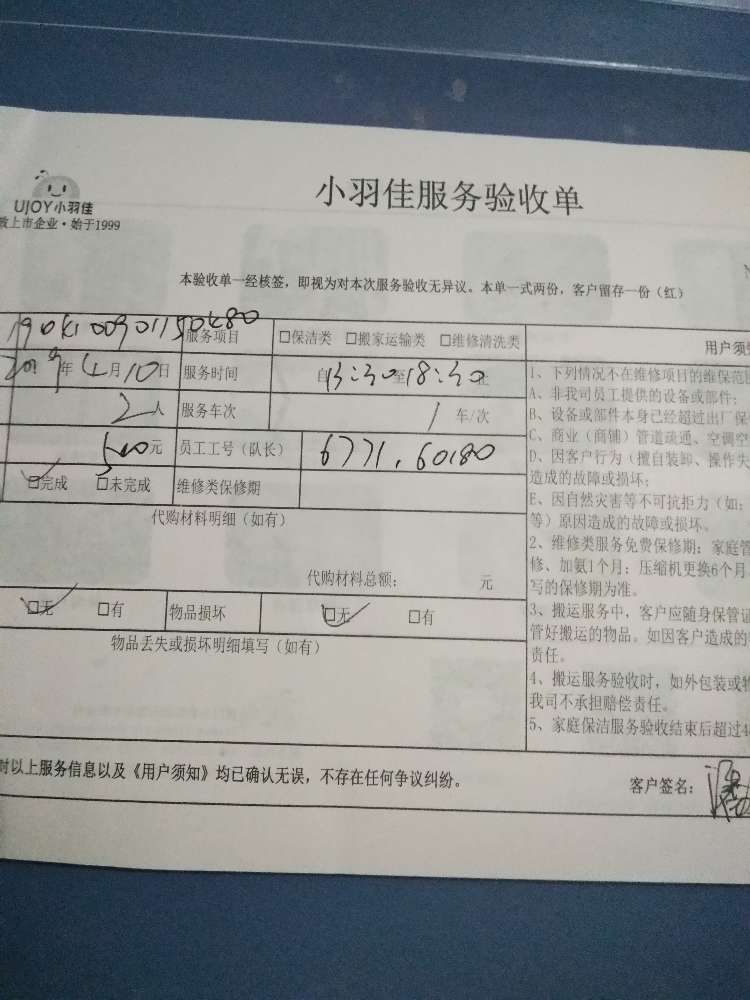 小羽佳服务验收单
UJOY小羽佳
上市企业·始于1999
本验收单一经核签，即视为对本次服务验收无异议。本单一式两份，客户留存一份（红）
服务项目 □保洁类 □搬家运输类 □维修清洗类
2019年4月10日 服务时间 自13:30至18:30止
2人 服务车次 1车/次
元 员工工号（队长） 6771,60180
□完成 □未完成 维修类保修期
代购材料明细（如有）
代购材料总额： 元
□无 □有 物品损坏 □无 □有
物品丢失或损坏明细填写（如有）
用户须
1、下列情况不在维修项目的维保范
A、非我司员工提供的设备或部件；
B、设备或部件本身已经超过出厂保
C、商业（商铺）管道疏通、空调空
D、因客户行为（擅自装卸、操作失
造成的故障或损坏；
E、因自然灾害等不可抗拒力（如：
等）原因造成的故障或损坏。
2、维修类服务免费保修期：家庭管
修、加氨1个月；压缩机更换6个月
写的保修期为准。
3、搬运服务中，客户应随身保管证
管好搬运的物品。如因客户造成的
责任。
4、搬运服务验收时，如外包装或物
我司不承担赔偿责任。
5、家庭保洁服务验收结束后超过4
对以上服务信息以及《用户须知》均已确认无误，不存在任何争议纠纷。
客户签名：